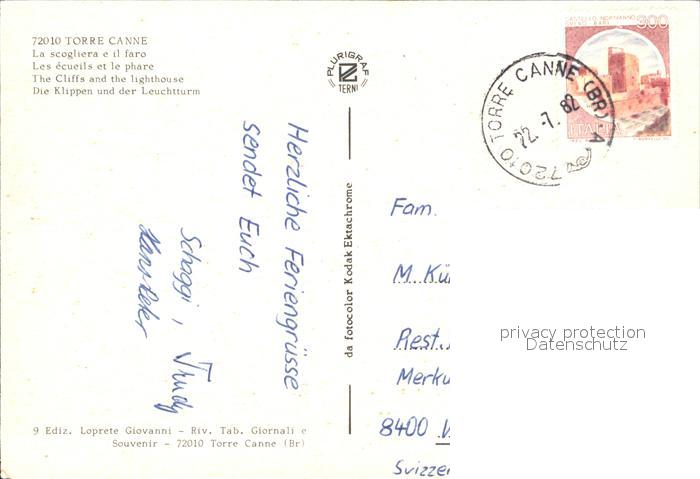 72010 TORRE CANNE
La scogliera e il faro
Les écueils et le phare
The Cliffs and the lighthouse
Die Klippen und der Leuchtturm
PLURIGRAF
TERNI
CASTELLO NORMANNO
SVEVO - BARI
300
ITALIA
72010 TORRE CANNE (BR) A
22.-7.82
Herzliche Feriengrüsse
sendet Euch
Schaggi, Trudy
Hanspeter
da fotocolor Kodak Ektachrome
Fam.
M. Kü
Rest.
Merku
8400
Svizze
privacy protection
Datenschutz
9 Ediz. Loprete Giovanni - Riv. Tab. Giornali e
Souvenir - 72010 Torre Canne (Br)